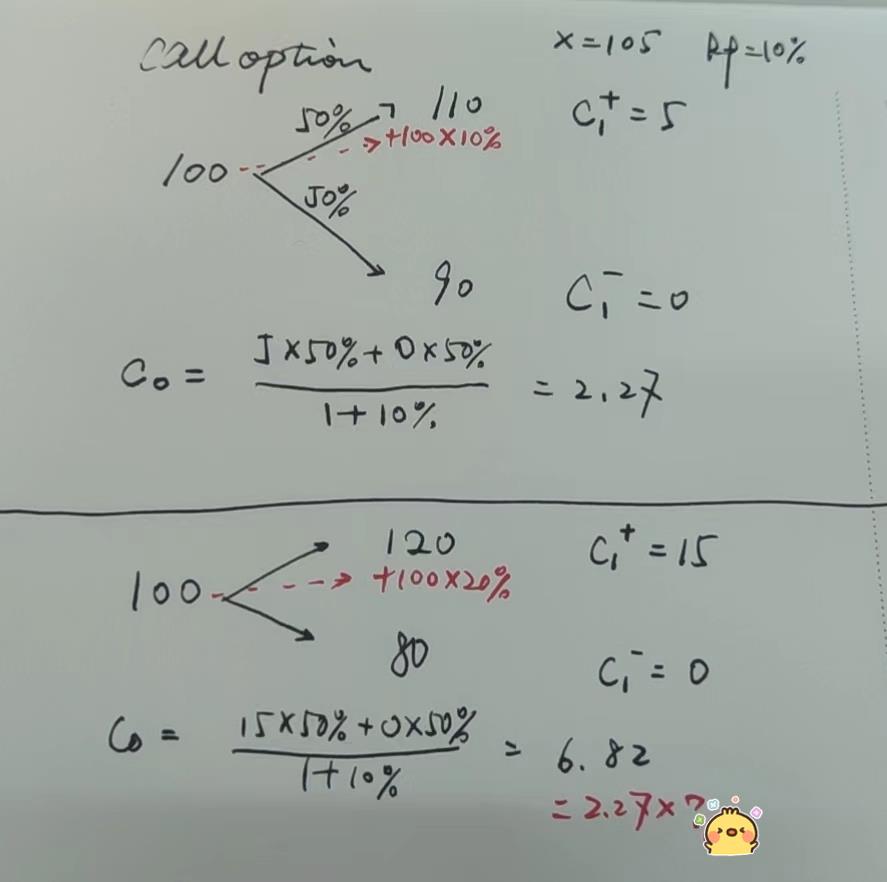 Call option X=105 Rf=10%
50% 110 C₁⁺ = 5
+100×10%
100
50%
90 C₁⁻ = 0
C₀ = (5×50%+0×50%)/(1+10%) = 2.27
120 C₁⁺ = 15
100 +100×20%
80 C₁⁻ = 0
C₀ = (15×50%+0×50%)/(1+10%) = 6.82
= 2.27×